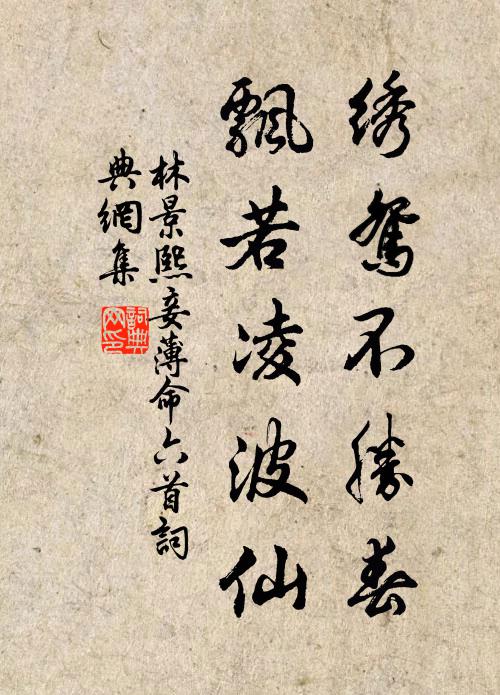 绣鸳不胜春
飘若凌波仙
林景熙妾薄命六首词
典网集
词典
网印